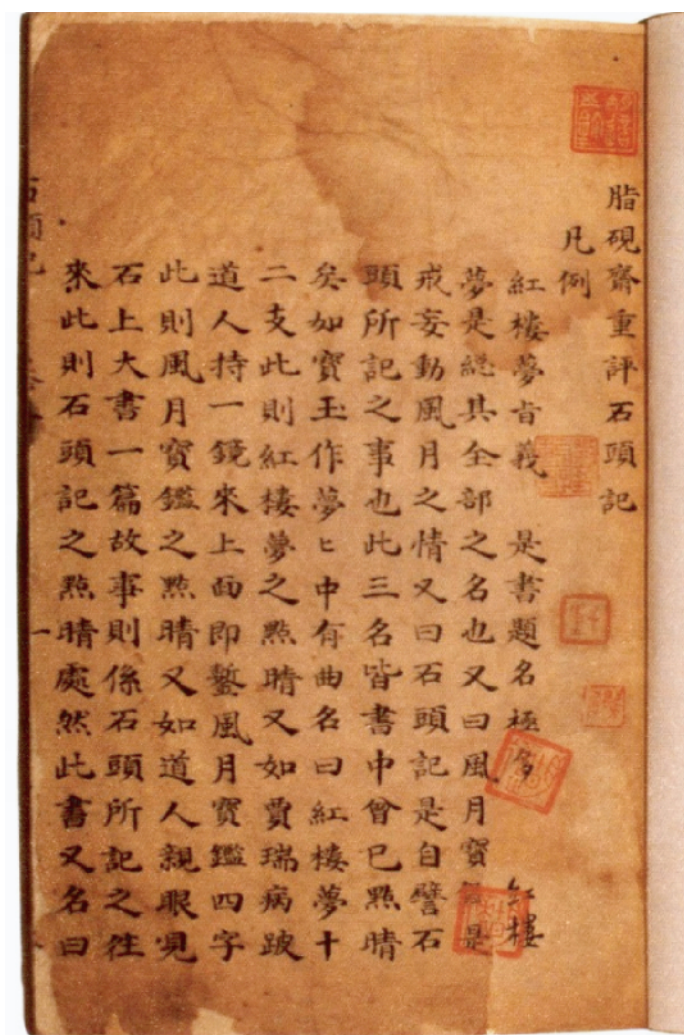 脂硯齋重評石頭記
凡例
紅樓夢旨義 是書題名極多 紅樓
夢是總其全部之名也又曰風月寶鑑是
戒妄動風月之情又曰石頭記是自譬石
頭所記之事也此三名皆書中曾已點睛
矣如寶玉作夢匕中有曲名曰紅樓夢十
二支此則紅樓夢之點睛又如賈瑞病跛
道人持一鏡來上面即鏨風月寶鑑四字
此則風月寶鑑之點睛又如道人親眼見
石上大書一篇故事則係石頭所記之往
來此則石頭記之點睛處然此書又名曰
石頭記
一